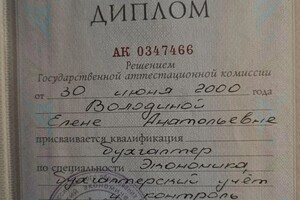 ДИПЛОМ
АК 0347466
Решением
Государственной аттестационной комиссии
от 30 июня 2000 года
Володиной
Елене Анатольевне
присваивается квалификация
бухгалтер
по специальности Экономика
бухгалтерский учёт
и контроль